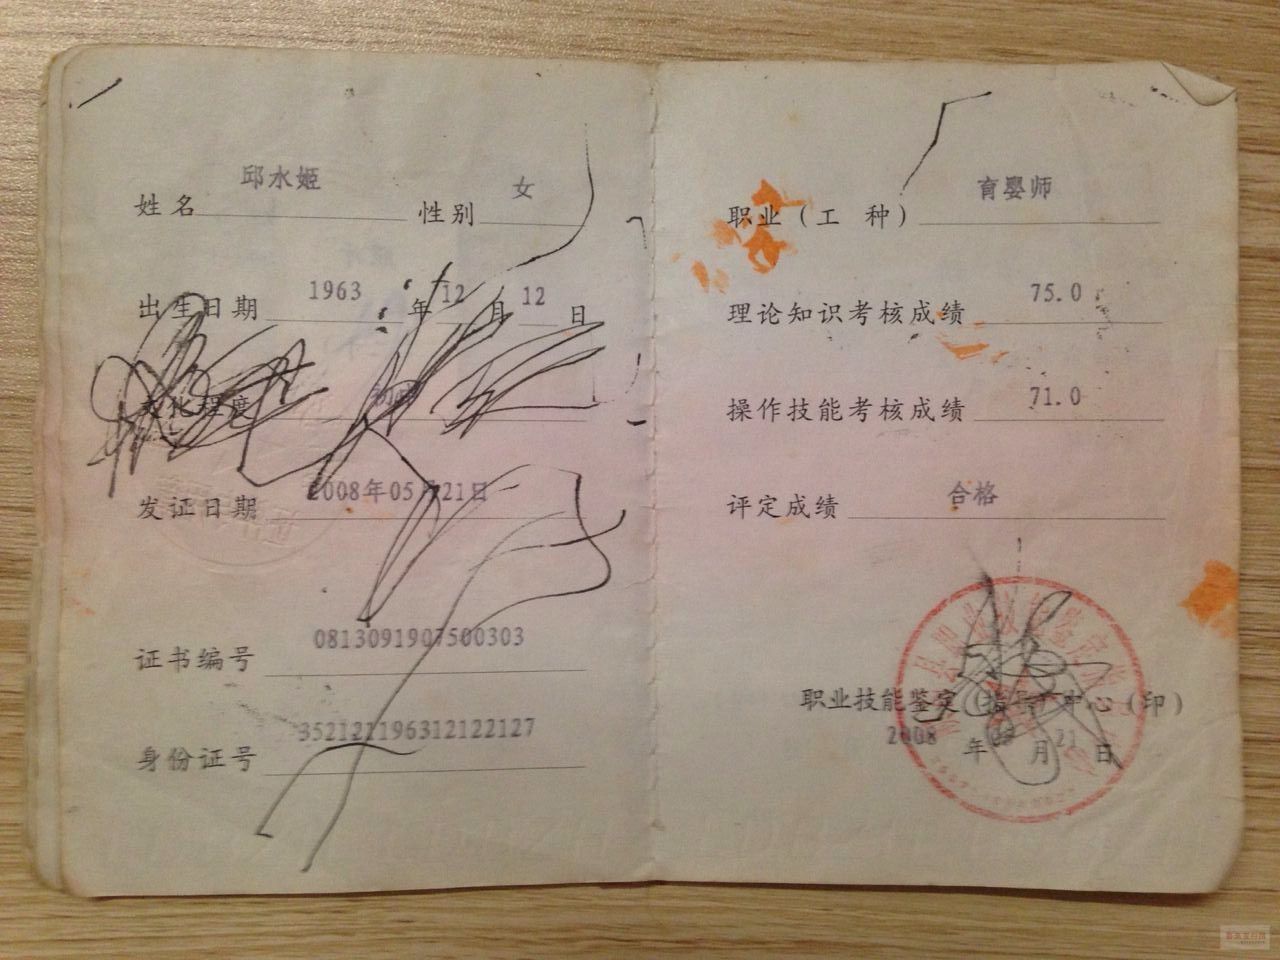 姓名 邱水姬 性别 女
出生日期 1963 年 12 月 12 日
文化程度 初中
发证日期 2008年05月21日
证书编号 0813091907500303
身份证号 352121196312122127
职业（工 种） 育婴师
理论知识考核成绩 75.0
操作技能考核成绩 71.0
评定成绩 合格
职业技能鉴定（指导）中心（印）
2008 年 月 21 日